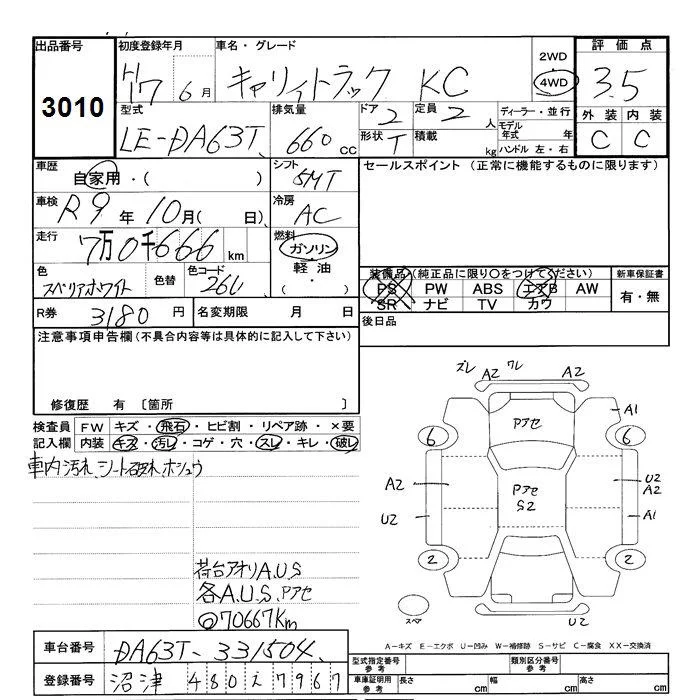 出品番号 初度登録年月 車名・グレード 2WD 評価点
3010 H17 6月 キャリィトラック KC 4WD 3.5
型式 排気量 ドア 定員 ディーラー・並行 外装 内装
LE-DA63T 660cc 2 2人 モデル年式 年 C C
形状 T 積載 kg ハンドル 左・右
車歴 自家用・( ) シフト 5MT セールスポイント (正常に機能するものに限ります)
車検 R9年10月( 日) 冷房 AC
走行 7万0千666km 燃料 ガソリン・軽油・( )
色 スペリアホワイト 色替 色コード 26U 装備品(純正品に限り○をつけてください) 新車保証書
PS PW ABS エアB AW 有・無
SR ナビ TV カワ
R券 3180円 名変期限 月 日 後日品
注意事項申告欄(不具合内容等は具体的に記入して下さい)
修復歴 有 〔箇所 〕
検査員 FW キズ・飛石・ヒビ割・リペア跡・×要
記入欄 内装 キズ・汚レ・コゲ・穴・スレ・キレ・破レ
車内汚れ、シート破れ、ホシュウ
荷台アオリA.U.S
各A.U.S、Pアセ
@70667Km
ズレ A2 ワレ A2
Pアセ A1
6 6
A2 Pアセ S2 U2 A2
U2 A1
2 2
スペア U2
A-キズ E-エクボ U-凹み W-補修跡 S-サビ C-腐食 XX-交換済
車台番号 DA63T-331504
型式指定番号 参考 類別区分番号 参考
登録番号 沼津 480 え 7967
車庫証明用 参考 長さ cm 幅 cm 高さ cm